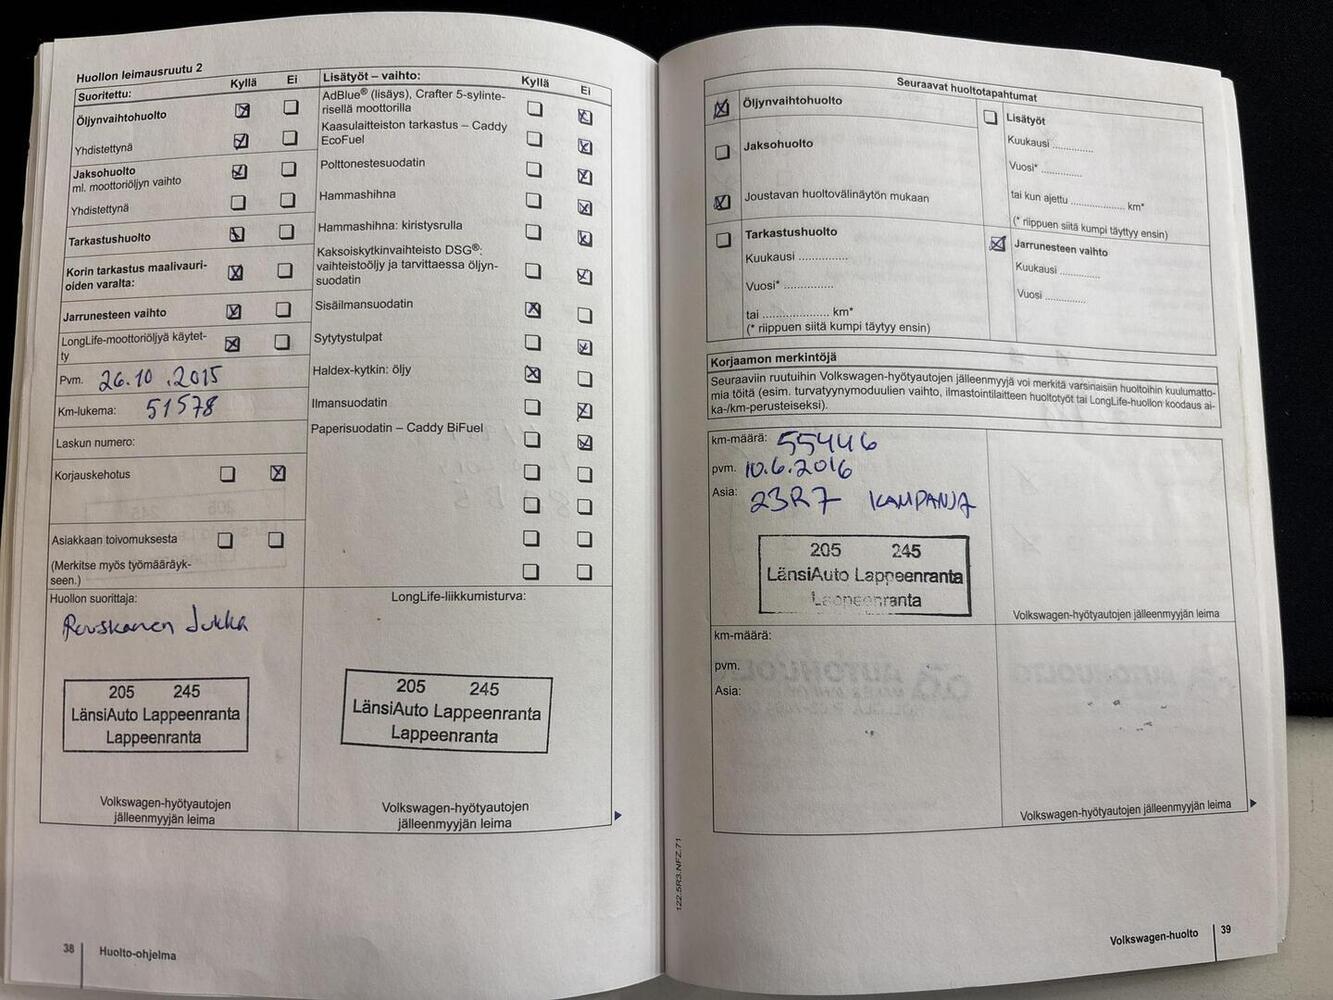 Huollon leimausruutu 2
Suoritettu:
Kyllä
Ei
Öljynvaihtohuolto
Yhdistettynä
Jaksohuolto
ml. moottoriöljyn vaihto
Yhdistettynä
Tarkastushuolto
Korin tarkastus maalivauri-
oiden varalta:
Jarrunesteen vaihto
LongLife-moottoriöljyä käytet-
ty
Pvm. 26.10.2015
Km-lukema: 51578
Laskun numero:
Korjauskehotus
Asiakkaan toivomuksesta
(Merkitse myös työmääräyk-
seen.)
Lisätyöt – vaihto:
Kyllä
Ei
AdBlue® (lisäys), Crafter 5-sylinte-
risellä moottorilla
Kaasulaitteiston tarkastus – Caddy
EcoFuel
Polttonestesuodatin
Hammashihna
Hammashihna: kiristysrulla
Kaksoiskytkinvaihteisto DSG®:
vaihteistoöljy ja tarvittaessa öljyn-
suodatin
Sisäilmansuodatin
Sytytystulpat
Haldex-kytkin: öljy
Ilmansuodatin
Paperisuodatin – Caddy BiFuel
Huollon suorittaja:
Jukka
205 245
LänsiAuto Lappeenranta
Lappeenranta
Volkswagen-hyötyautojen
jälleenmyyjän leima
LongLife-liikkumisturva:
205 245
LänsiAuto Lappeenranta
Lappeenranta
Volkswagen-hyötyautojen
jälleenmyyjän leima
38 Huolto-ohjelma
Seuraavat huoltotapahtumat
Öljynvaihtohuolto
Jaksohuolto
Joustavan huoltovälinäytön mukaan
Tarkastushuolto
Kuukausi ..............
Vuosi* ..............
tai .................... km*
(* riippuen siitä kumpi täytyy ensin)
Lisätyöt
Kuukausi ............
Vuosi* ............
tai kun ajettu ................ km*
(* riippuen siitä kumpi täyttyy ensin)
Jarrunesteen vaihto
Kuukausi ............
Vuosi ............
Korjaamon merkintöjä
Seuraaviin ruutuihin Volkswagen-hyötyautojen jälleenmyyjä voi merkitä varsinaisiin huoltoihin kuulumatto-
mia töitä (esim. turvatyynymoduulien vaihto, ilmastointilaitteen huoltotyöt tai LongLife-huollon koodaus ai-
ka-/km-perusteiseksi).
km-määrä: 55446
pvm. 10.6.2016
Asia: 23R7 KAMPANJA
205 245
LänsiAuto Lappeenranta
Lappeenranta
Volkswagen-hyötyautojen jälleenmyyjän leima
km-määrä:
pvm.
Asia:
Volkswagen-hyötyautojen jälleenmyyjän leima
122.5R3.NFZ.71
Volkswagen-huolto 39